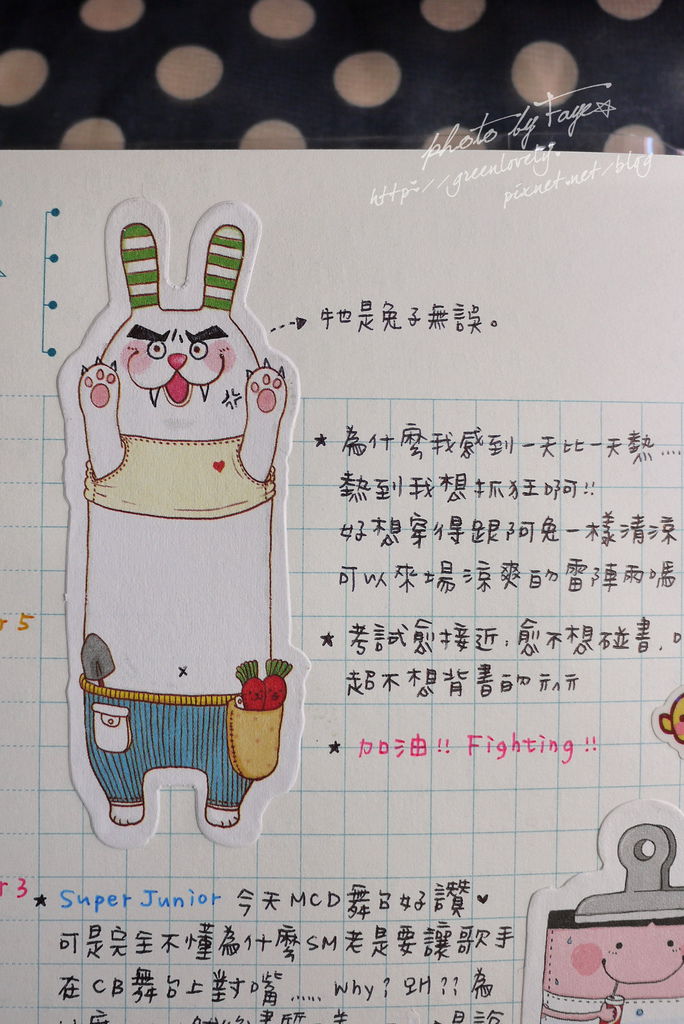 photo by Faye☆
http://greenlovety.
pixnet.net/blog
牠是兔子無誤。
★ 為什麼我感到一天比一天熱.....
熱到我想抓狂啊!!
好想穿得跟阿兔一樣清涼
可以來場涼爽的雷陣雨嗎
★ 考試愈接近,愈不想碰書,
超不想背書的
r 5
★ 加油!! Fighting!!
r 3
★ Super Junior 今天MCD舞台好讚♥
可是完全不懂為什麼SM老是要讓歌手
在CB舞台上對嘴...... Why? 왜?? 為